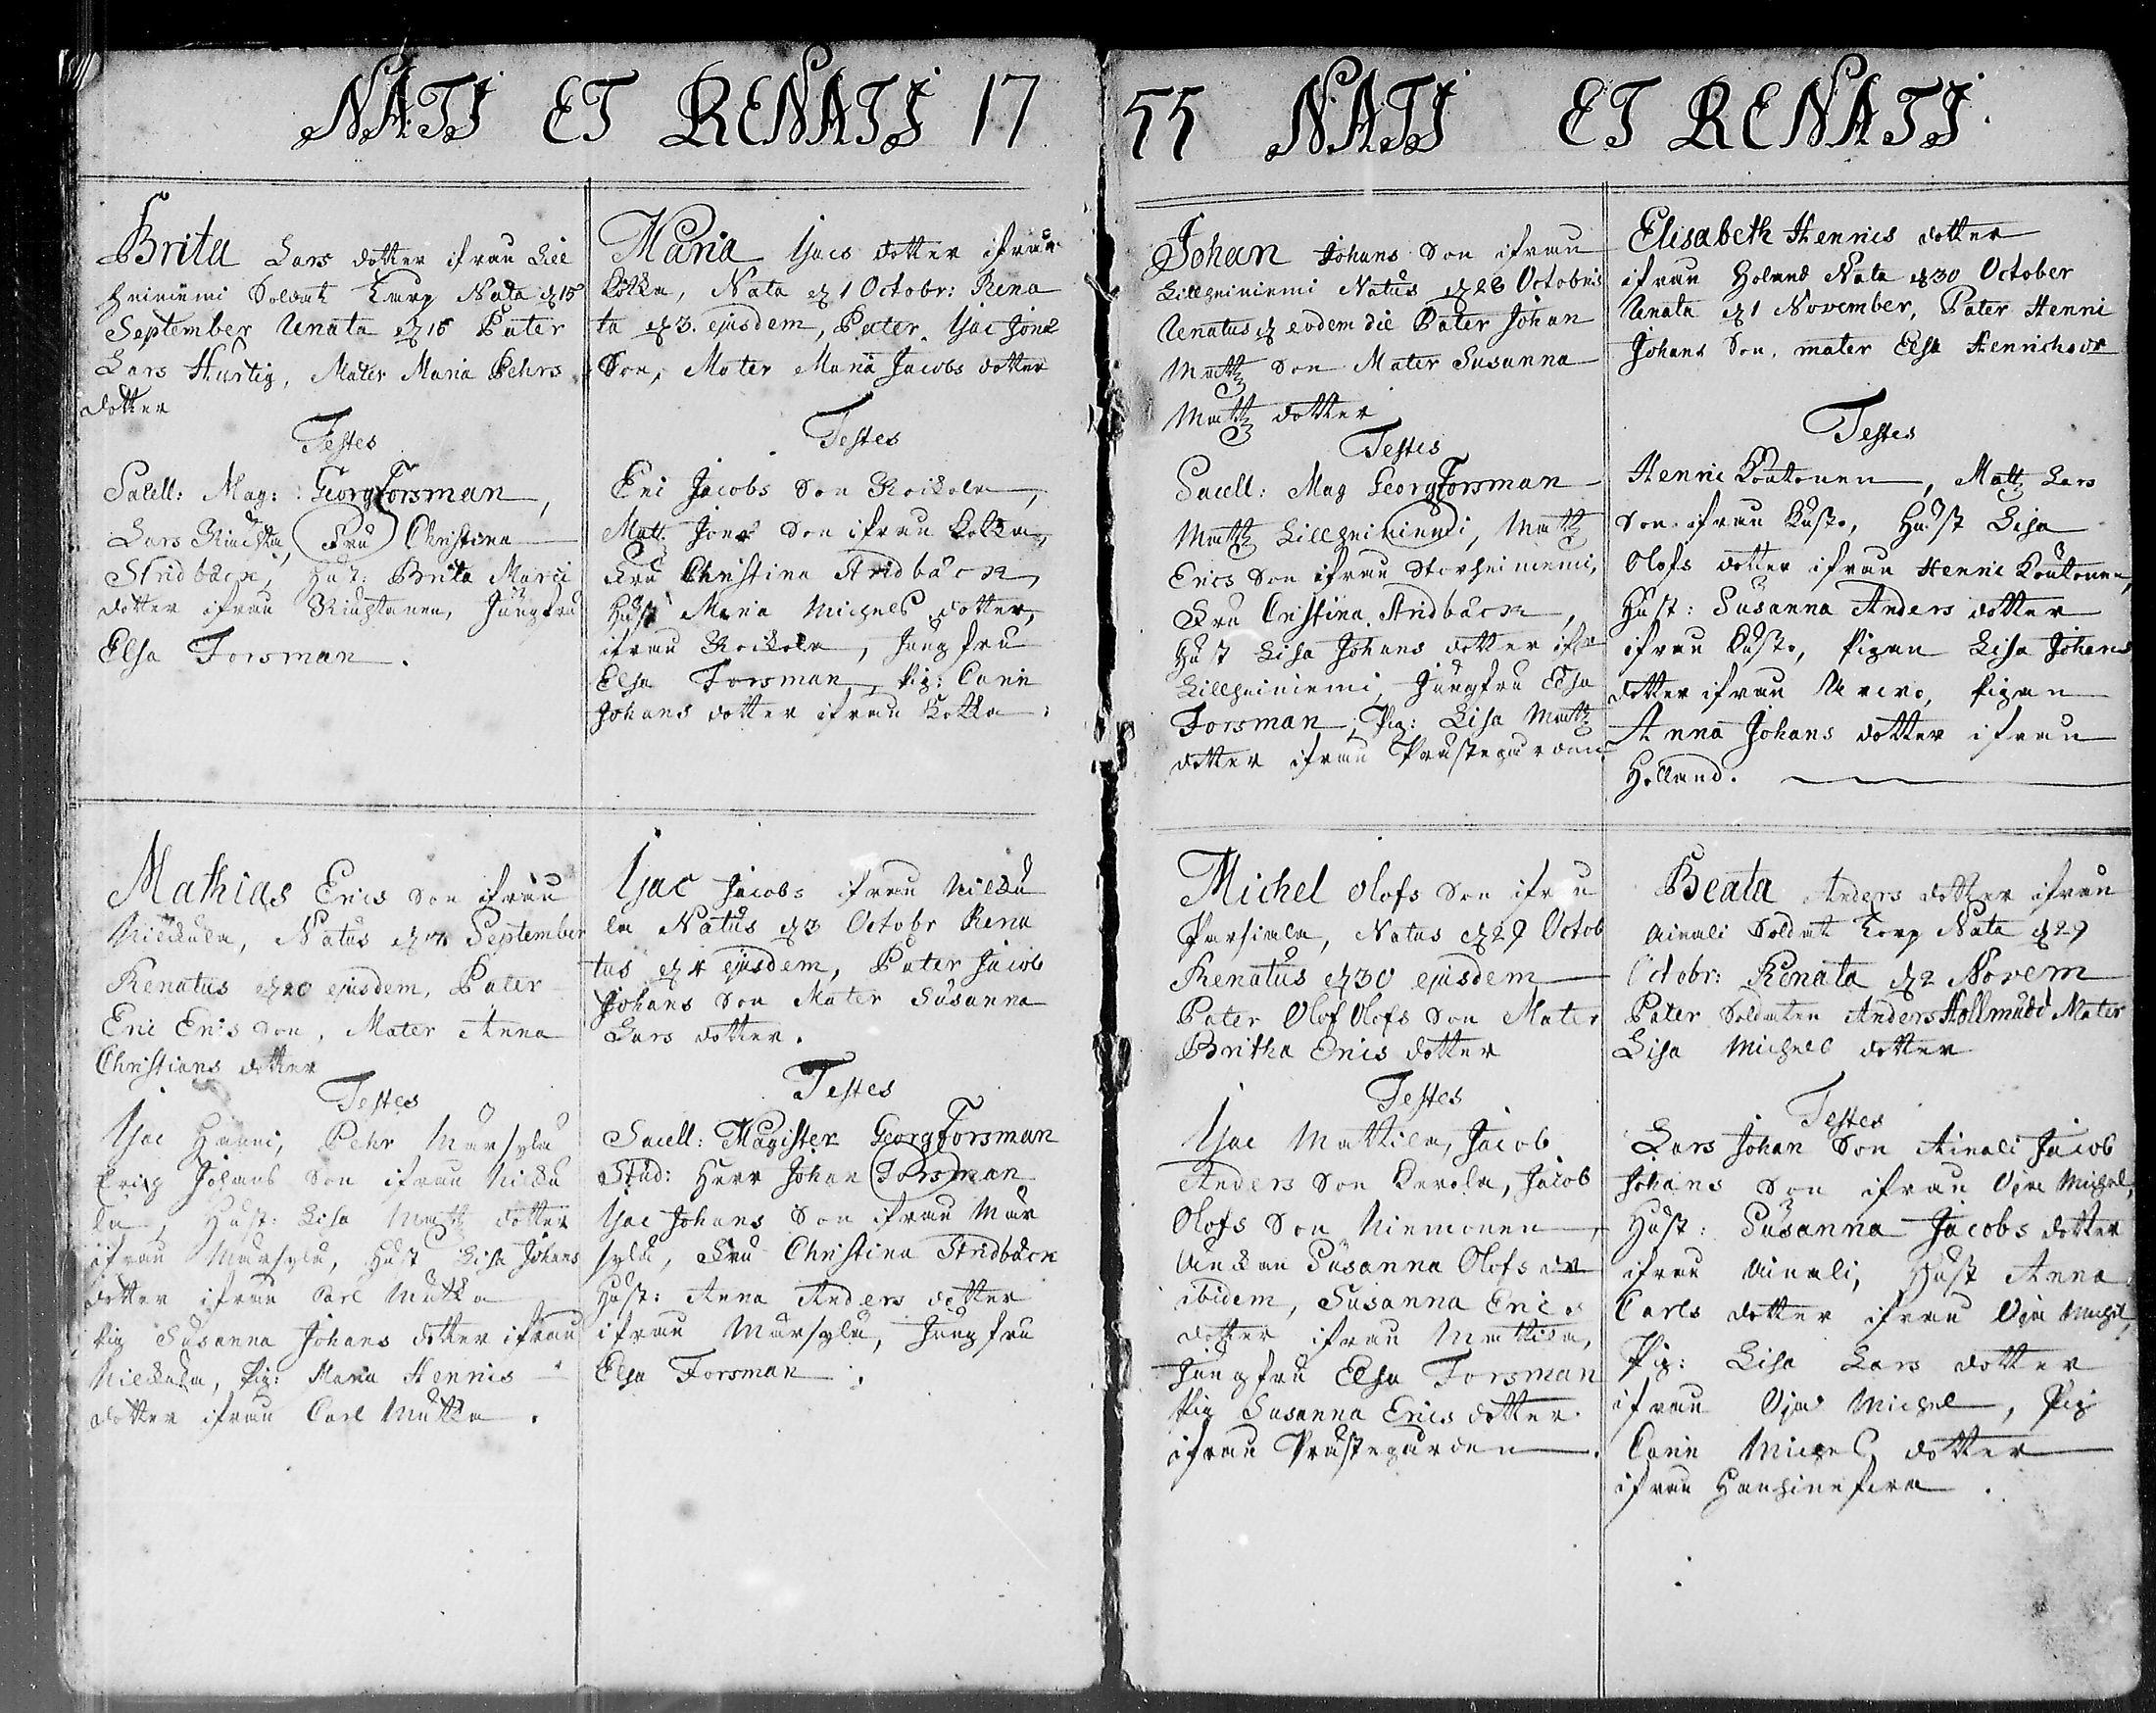 NATI ET RENATI 17
Brita Lars dotter ifrån Lill
heiniemi Soldat Torp Nata d 15
September Renata d 16 Pater
Lars Hurtig, Mater Maria Pehrs
dotter
Testes
Sacell: Mag: Georg Forsman,
Lars Fru Christina
Stridbäck, Hust: Brita Marci
dotter ifrån Jungfru
Elsa Forsman.
Mathias Erics Son ifrån
Nickula, Natus d September
Renatus d 20 ejusdem, Pater
Eric Erics Son, Mater Anna
Christians dotter
Testes
Isac Hanni, Pehr Mursylä
Erich Johans Son ifrån Nicku
la, Hust: Lisa Matts dotter
ifrån Mursylä, Hust Lisa Johans
dotter ifrån Carl Mutka
Pig Susanna Johans dotter ifrån
Nickula, Pig: Maria Henrics
dotter ifrån Carl Mutka.
Maria Isacs dotter ifrån
Kokko, Nata d 1 Octobr: Rena
ta d 3. ejusdem, Pater Isac Jons
Son, Mater Maria Jacobs dotter
Testes
Eric Jacobs Son Roikola,
Matt Jons Son ifrån Kokko,
Fru Christina Stridbäck,
Hust Maria Michels dotter,
ifrån Roikola, Jungfru
Elsa Forsman, Pig: Carin
Johans dotter ifrån Kokko.
Isac Jacobs ifrån Nicku
la Natus d 3 Octobr Rena
tus d 4 ejusdem, Pater Jacob
Johans Son Mater Susanna
Lars dotter.
Testes
Sacell: Magister Georg Forsman
Stud: Herr Johan Forsman
Isac Johans Son ifrån Mur
sylä, Fru Christina Stridbäck
Hust: Anna Anders dotter
ifrån Mursylä, Jungfru
Elsa Forsman.
55 NATI ET RENATI
Johan Johans Son ifrån
Lillheiniemi Natus d 28 Octobris
Renatus d eodem die Pater Johan
Matts Son Mater Susanna
Matts dotter
Testes
Sacell: Mag Georg Forsman
Matts Lillheiniemi, Matts
Erics Son ifrån Storheiniemi,
Fru Cristina Stridbäck,
Hust Lisa Johans dotter ifr
Lillheiniemi, Jungfru Elsa
Forsman, Pig: Lisa Matts
dotter ifrån Prästegården.
Michel Olofs Son ifrån
Parsiala, Natus d 29 Octob
Renatus d 30 ejusdem
Pater Olof Olofs Son Mater
Britha Erics dotter
Testes
Isac Mattila, Jacob
Anders Son Kerola, Jacob
Olofs Son Niemonen,
Susanna Olofs dr
ibidem, Susanna Erics
dotter ifrån Mattila,
Jungfru Elsa Forsman
Pig Susanna Erics dotter
ifrån Prästegården.
Elisabeth Henrics dotter
ifrån Holand Nata d 30 October
Renata d 1 November, Pater Henric
Johans Son, mater Elsa Henrichs dr
Testes
Henric Koutonen, Matts Lars
Son ifrån Kusto, Hust Lisa
Olofs dotter ifrån Henric Koutonen,
Hust: Susanna Anders dotter
ifrån Kusto, Pigan Lisa Johans
dotter ifrån Pigan
Anna Johans dotter ifrån
Holland.
Beata Anders dotter ifrån
Ainali Soldat Torp Nata d 29
Octobr: Renata d 2 Novem
Pater Soldaten Anders Hollmudd Mater
Lisa Michels dotter
Testes
Lars Johan Son Ainali Jacob
Johans Son ifrån Oja Michel,
Hust: Susanna Jacobs dotter
ifrån Ainali, Hust Anna
Carls dotter ifrån Oja Michel,
Pig: Lisa Lars dotter
ifrån Oja Michel, Pig
Carin Michels dotter
ifrån